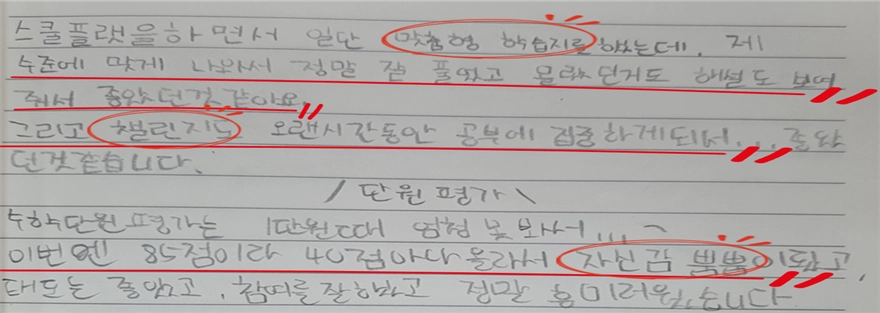 스쿨플랫을하면서 일단 맞춤형 학습지를했는데, 제
수준에 맞게 나와서 정말 잘 풀었고 몰랐던거도 해설도 보여
줘서 좋았던것같아요.
그리고 챌린지도 오랜시간동안 공부에 집중하게되서... 좋았
던것같습니다.
/단원평가\
수학단원평가는 1단원때 엄청 못봐서...~
이번엔 85점이라 40점이나 올라서 자신감 뿜뿜이됐고,
태도는 좋았고, 참여를잘하였고 정말 흥미러웠습니다.